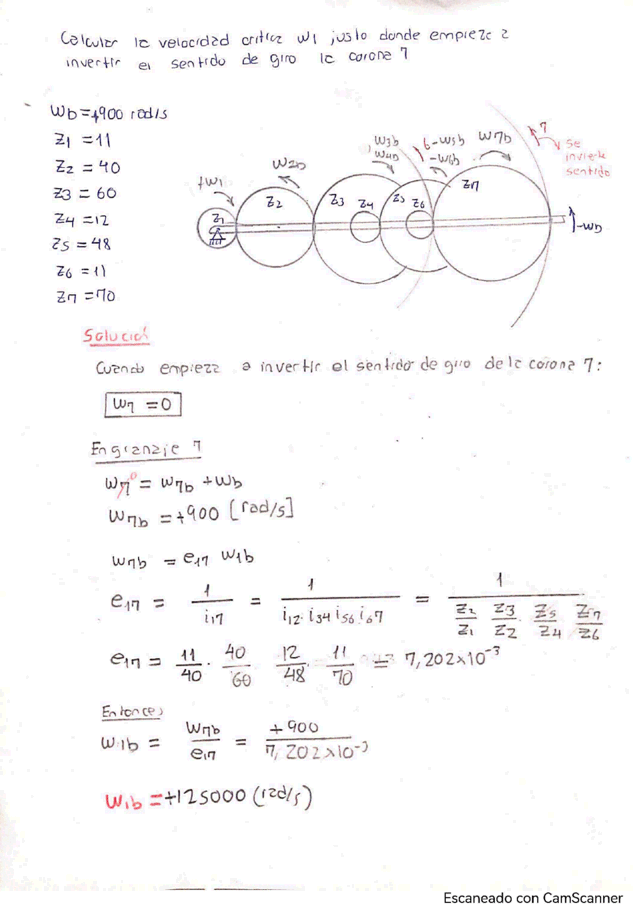 Calcular la velocidad critica w1 justo donde empieze a
invertir el sentido de giro la corona 7
Wb=+900 rad/s
Z1 = 11
Z2 = 40
Z3 = 60
Z4 = 12
Z5 = 48
Z6 = 11
Z7 = 70
+w1
Z1
W2b
Z2
Z3
W3b
W4b
Z4
6-W5b
-W6b
Z5
Z6
W7b
Z7
7
Se
invierte
sentido
-Wb
Solución
Cuando empieza a invertir el sentido de giro de la corona 7:
W7 = 0
Engranaje 7
W7⁰ = W7b + Wb
W7b = +900 [rad/s]
W7b = e17 W1b
e17 = 1/i17 = 1/(i12 · i34 i56 i67) = 1/(Z2/Z1 Z3/Z2 Z5/Z4 Z7/Z6)
e17 = 11/40 · 40/60 12/48 · 11/70 = 7,202x10⁻³
Entonces
W1b = W7b/e17 = +900/7,202x10⁻³
W1b = +125000 (rad/s)
Escaneado con CamScanner